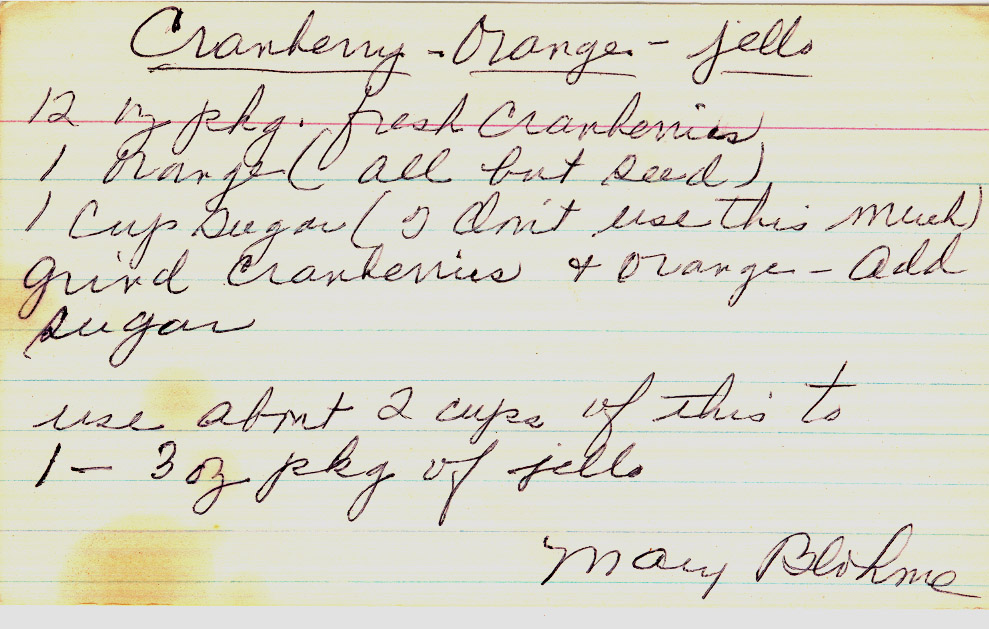 Cranberry - Orange - jello
12 oz pkg. fresh Cranberries
1 orange (all but seed)
1 Cup Sugar (I don't use this much)
grind Cranberries + orange - add
sugar
use about 2 cups of this to
1 - 3 oz pkg of jello
Mary Blohme